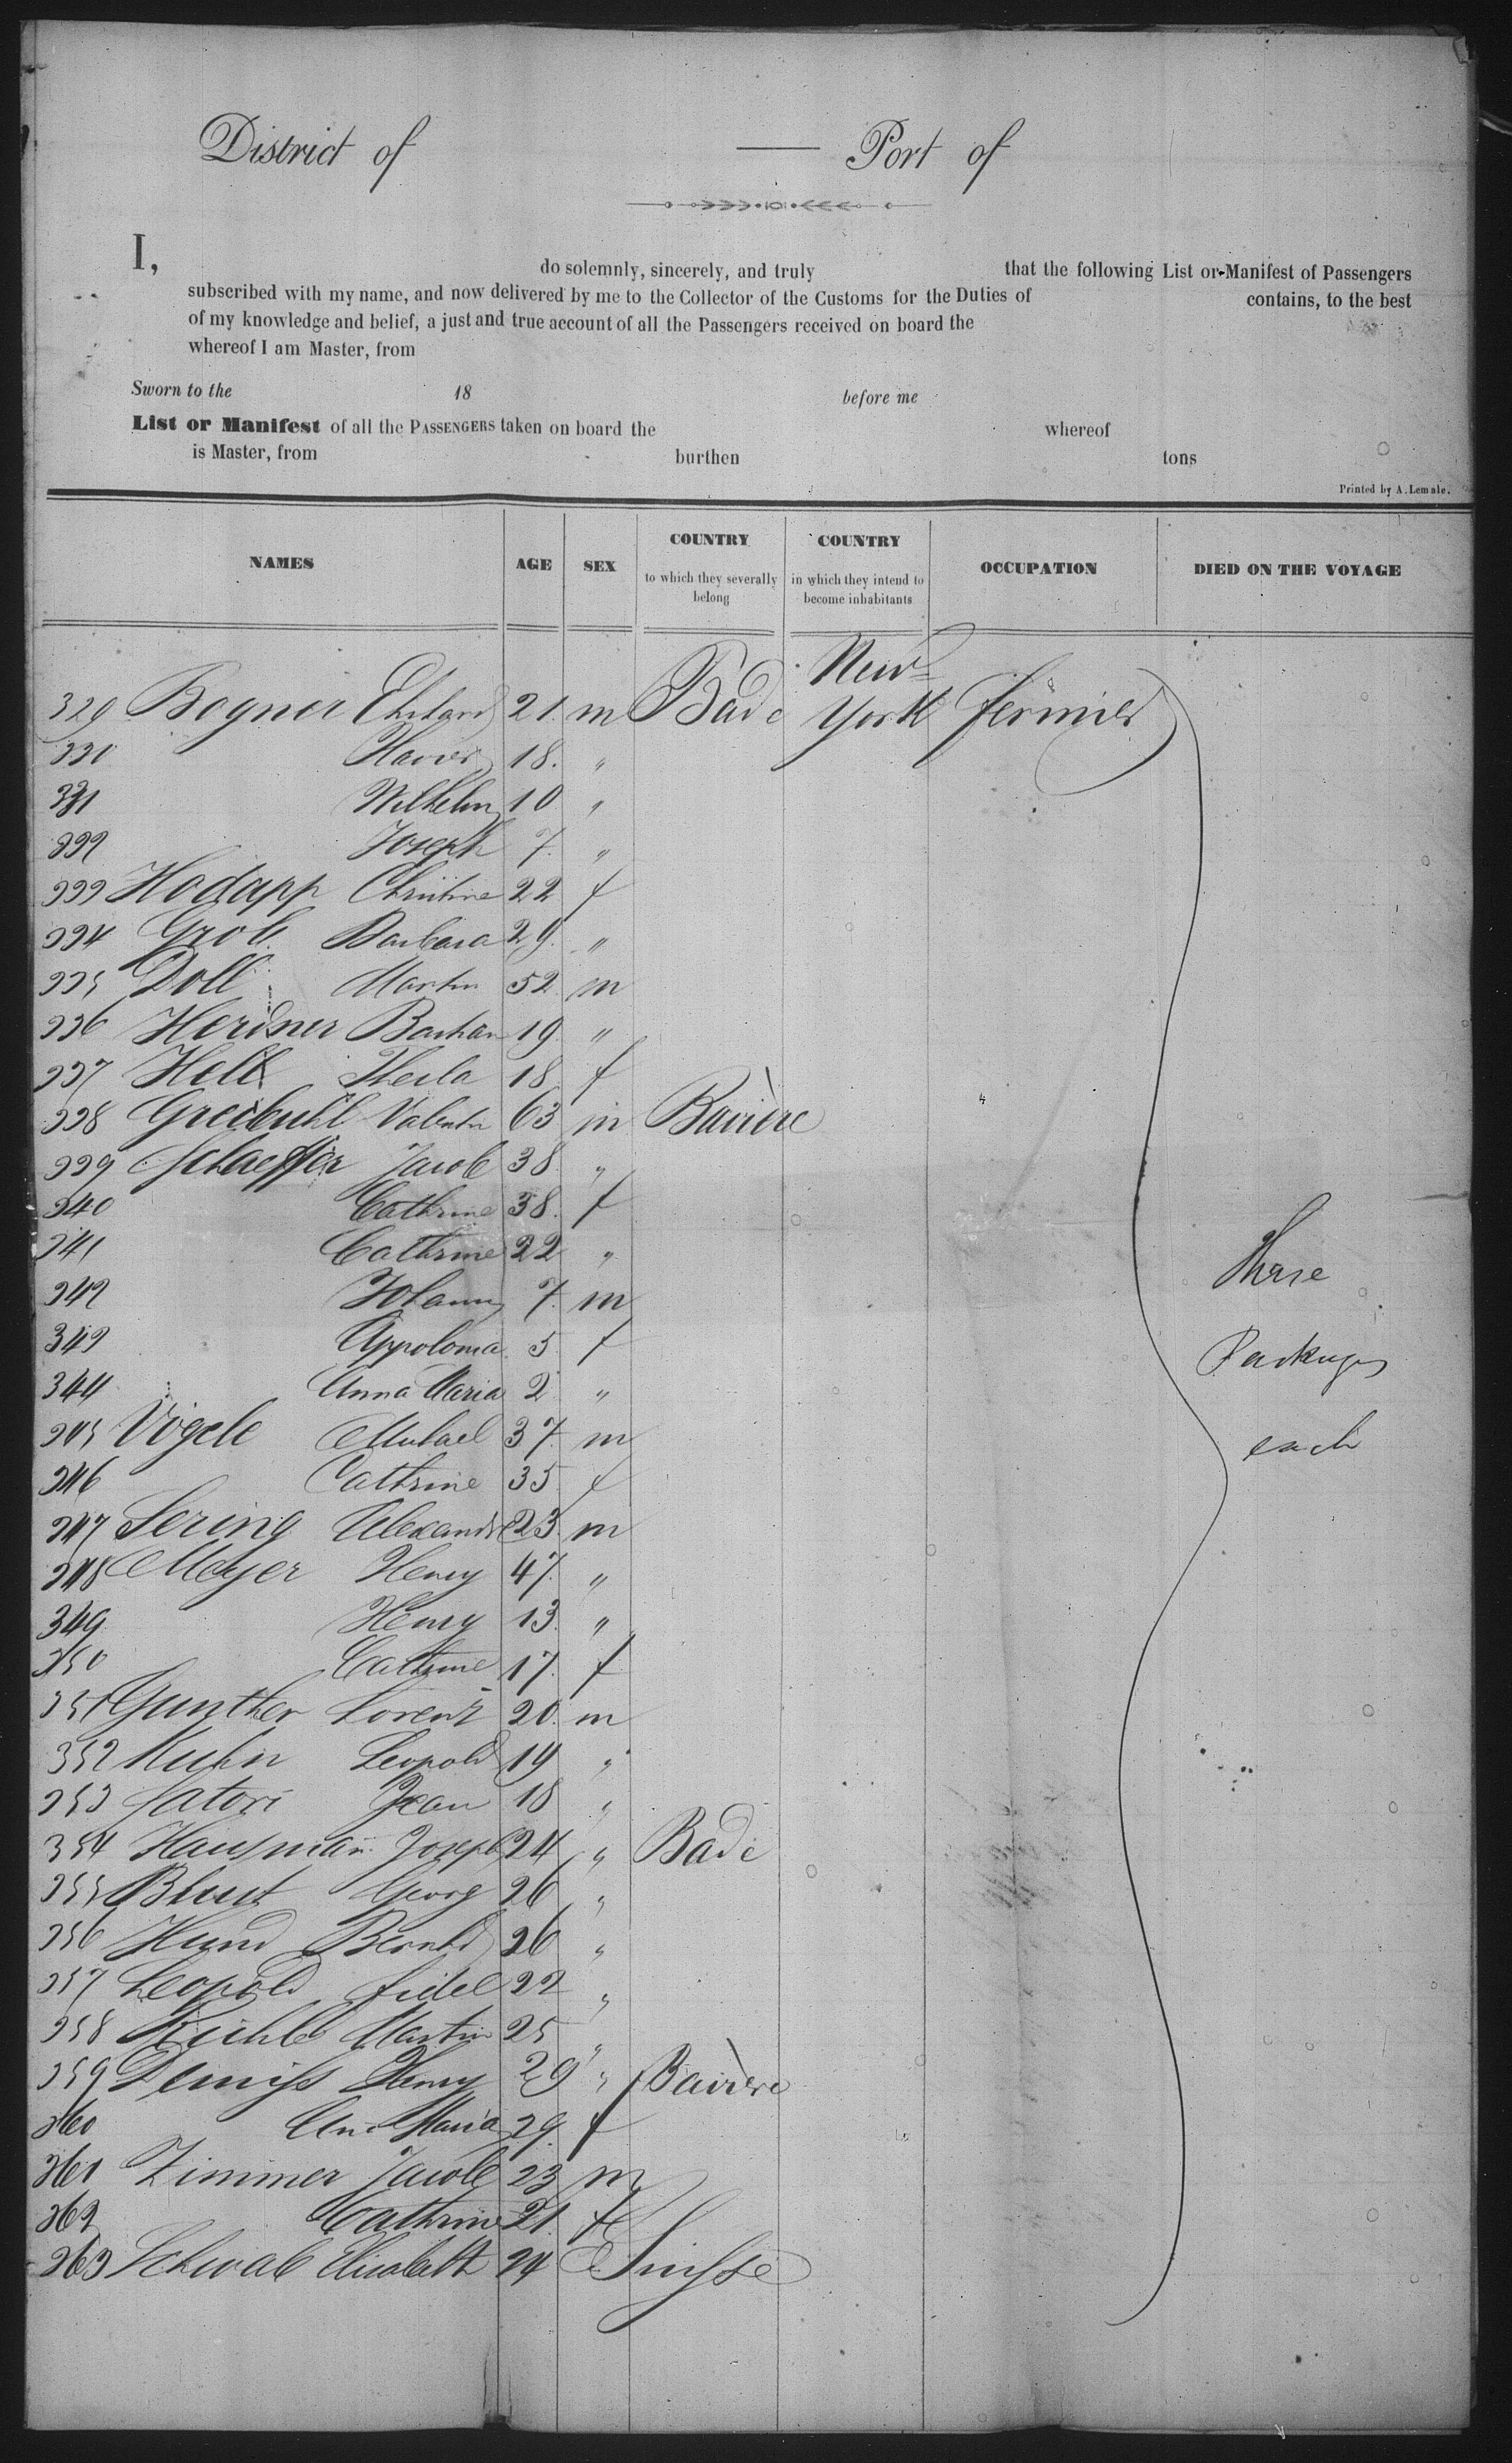 District of — Port of
I, do solemnly, sincerely, and truly that the following List or Manifest of Passengers
subscribed with my name, and now delivered by me to the Collector of the Customs for the Duties of contains, to the best
of my knowledge and belief, a just and true account of all the Passengers received on board the
whereof I am Master, from
Sworn to the 18 before me
List or Manifest of all the PASSENGERS taken on board the whereof
is Master, from burthen tons
Printed by A. Lemale.
NAMES AGE SEX COUNTRY to which they severally belong COUNTRY in which they intend to become inhabitants OCCUPATION DIED ON THE VOYAGE
329 Bogner Ehrhard 21 m Bade New-York fermier
330 Xavier 18 "
331 Wilhelm 10 "
332 Joseph 7 "
333 Hodapp Christine 22 f
334 Grob Barbara 29 "
335 Doll Martin 52 m
336 Herdner 19 "
337 Thecla 18 f
338 Valentin 63 m Bavière
339 Schaeffer Jacob 38 "
340 Cathrine 38 f
341 Cathrine 22 "
342 Johann 7 m
343 Appolonia 5 f
344 Anna Maria 2 "
345 Vögele Michael 37 m
346 Cathrine 35 f
347 Sering Alexandre 23 m
348 Meyer Henry 47 "
349 Henry 13 "
350 Cathrine 17 f
351 Gunther Lorenz 20 m
352 Kuhn Leopold 19 "
353 Satori Jean 18 "
354 Hausman Joseph 24 " Bade
355 Georg 26 "
356 Hund Bernhd 26 "
357 Leopold fidel 22 "
358 Martin 25 "
359 Henry 29 " Bavière
360 Maria 29 f
361 Zimmer Jacob 23 m
362 Cathrine 21 f
363 Schwab Elisabeth 24 Suisse
Packages
each